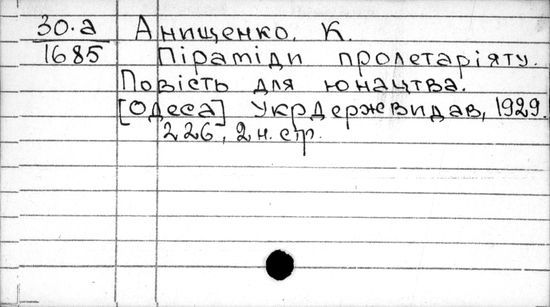 30.а Анищенко, К.
1685 Піраміди пролетаріяту.
Повість для юнацтва.
[Одеса] Укрдержвидав, 1929.
226, 2 н. стр.